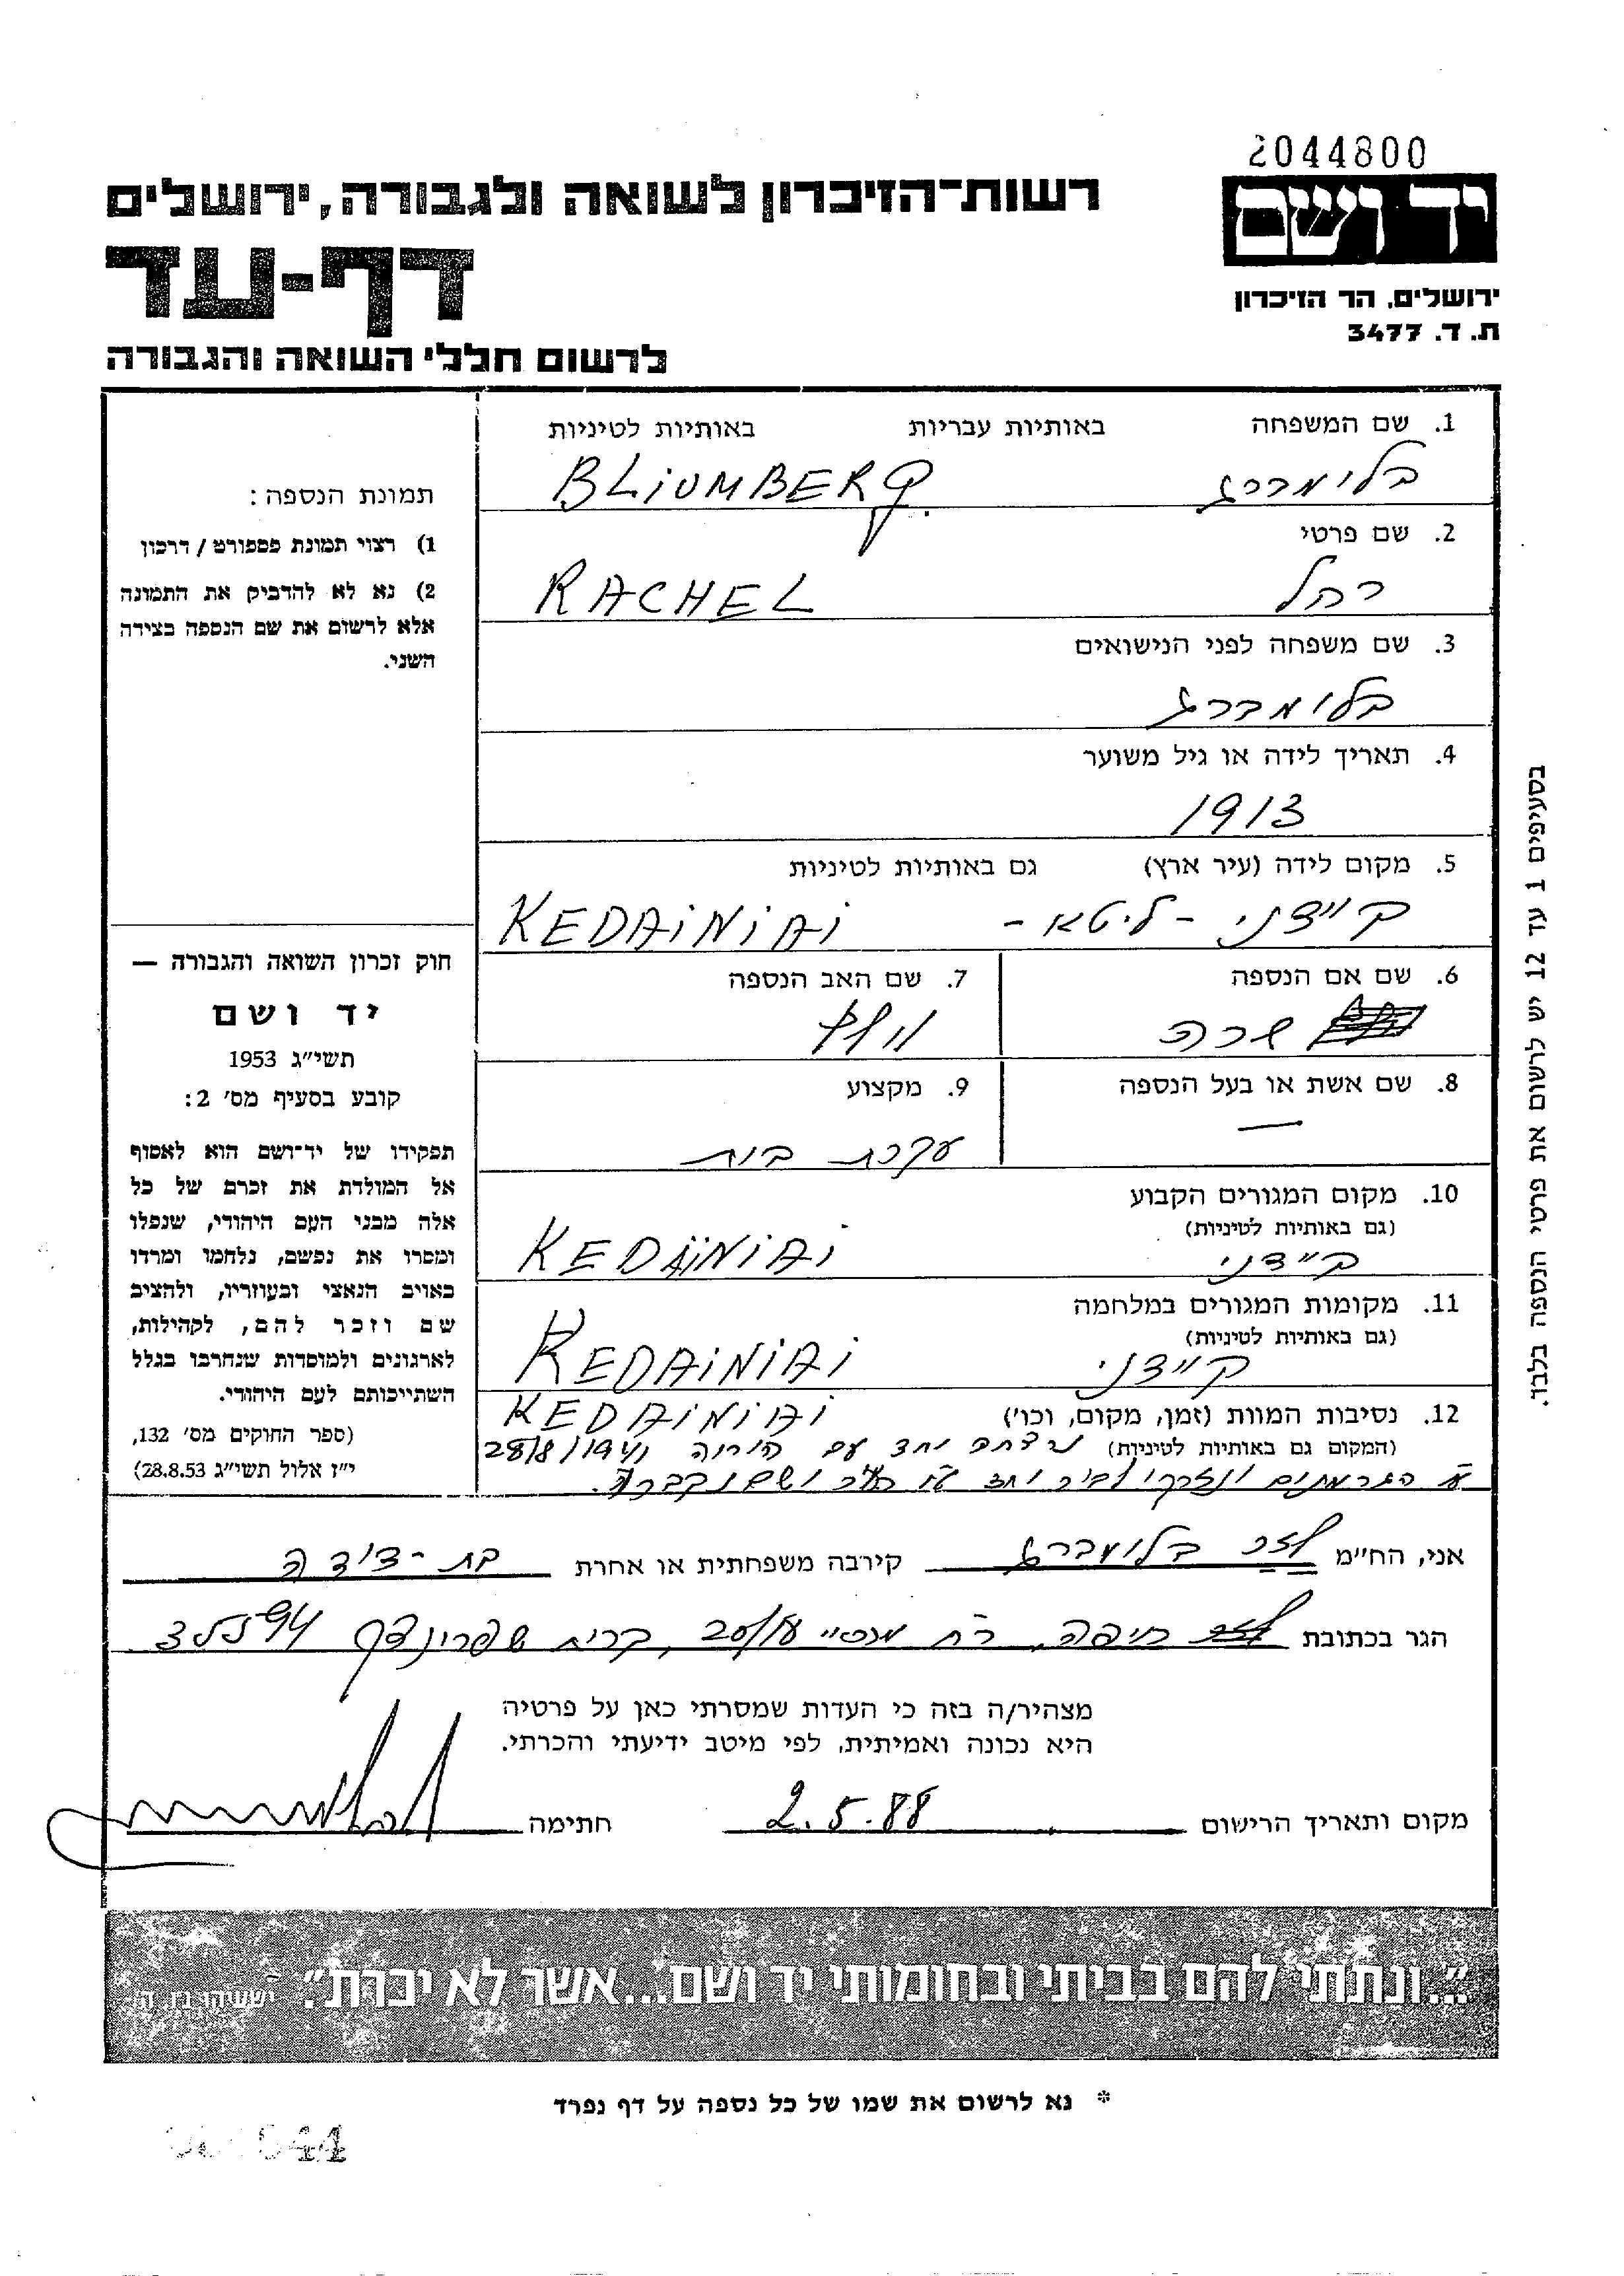 2044800
יד ושם
רשות-הזיכרון לשואה ולגבורה, ירושלים
דף-עד
ירושלים, הר הזיכרון
ת. ד. 3477
לרשום חללי השואה והגבורה
1. שם המשפחה באותיות עבריות באותיות לטיניות
בלומברג BLIUMBERG
2. שם פרטי
רחל RACHEL
3. שם משפחה לפני הנישואים
בלומברג
4. תאריך לידה או גיל משוער
1913
5. מקום לידה (עיר ארץ) גם באותיות לטיניות
קיידני - ליטא - KEDAINIAI
6. שם אם הנספה 7. שם האב הנספה
שרה וולף
8. שם אשת או בעל הנספה 9. מקצוע
— עקרת בית
10. מקום המגורים הקבוע
(גם באותיות לטיניות)
קיידני KEDAINIAI
11. מקומות המגורים במלחמה
(גם באותיות לטיניות)
קיידני KEDAINIAI
12. נסיבות המוות (זמן, מקום, וכו') KEDAINIAI
(המקום גם באותיות לטיניות) נרצחה יחד עם הוריה 28/8/1941
ע"י הגרמנים ונזרקו לבור יחד ושם נקברה.
תמונת הנספה:
1) רצוי תמונת פספורט / דרכון
2) נא לא להדביק את התמונה
אלא לרשום את שם הנספה בצידה
השני.
חוק זכרון השואה והגבורה —
יד ושם
תשי"ג 1953
קובע בסעיף מס' 2:
תפקידו של יד-ושם הוא לאסוף
אל המולדת את זכרם של כל
אלה מבני העם היהודי, שנפלו
ומסרו את נפשם, נלחמו ומרדו
באויב הנאצי ובעוזריו, ולהציב
שם וזכר להם, לקהילות,
לארגונים ולמוסדות שנחרבו בגלל
השתייכותם לעם היהודי.
(ספר החוקים מס' 132,
י"ז אלול תשי"ג 28.8.53)
בסעיפים 1 עד 12 יש לרשום את פרטי הנספה בלבד.
אני, הח"מ בלומברג קירבה משפחתית או אחרת בת-דודה
הגר בכתובת חיפה, קרית שפרינצק
מצהיר/ה בזה כי העדות שמסרתי כאן על פרטיה
היא נכונה ואמיתית, לפי מיטב ידיעתי והכרתי.
מקום ותאריך הרישום 2.5.88 חתימה
"...ונתתי להם בביתי ובחומותי יד ושם...אשר לא יכרת". ישעיהו נ"ו, ה'
* נא לרשום את שמו של כל נספה על דף נפרד